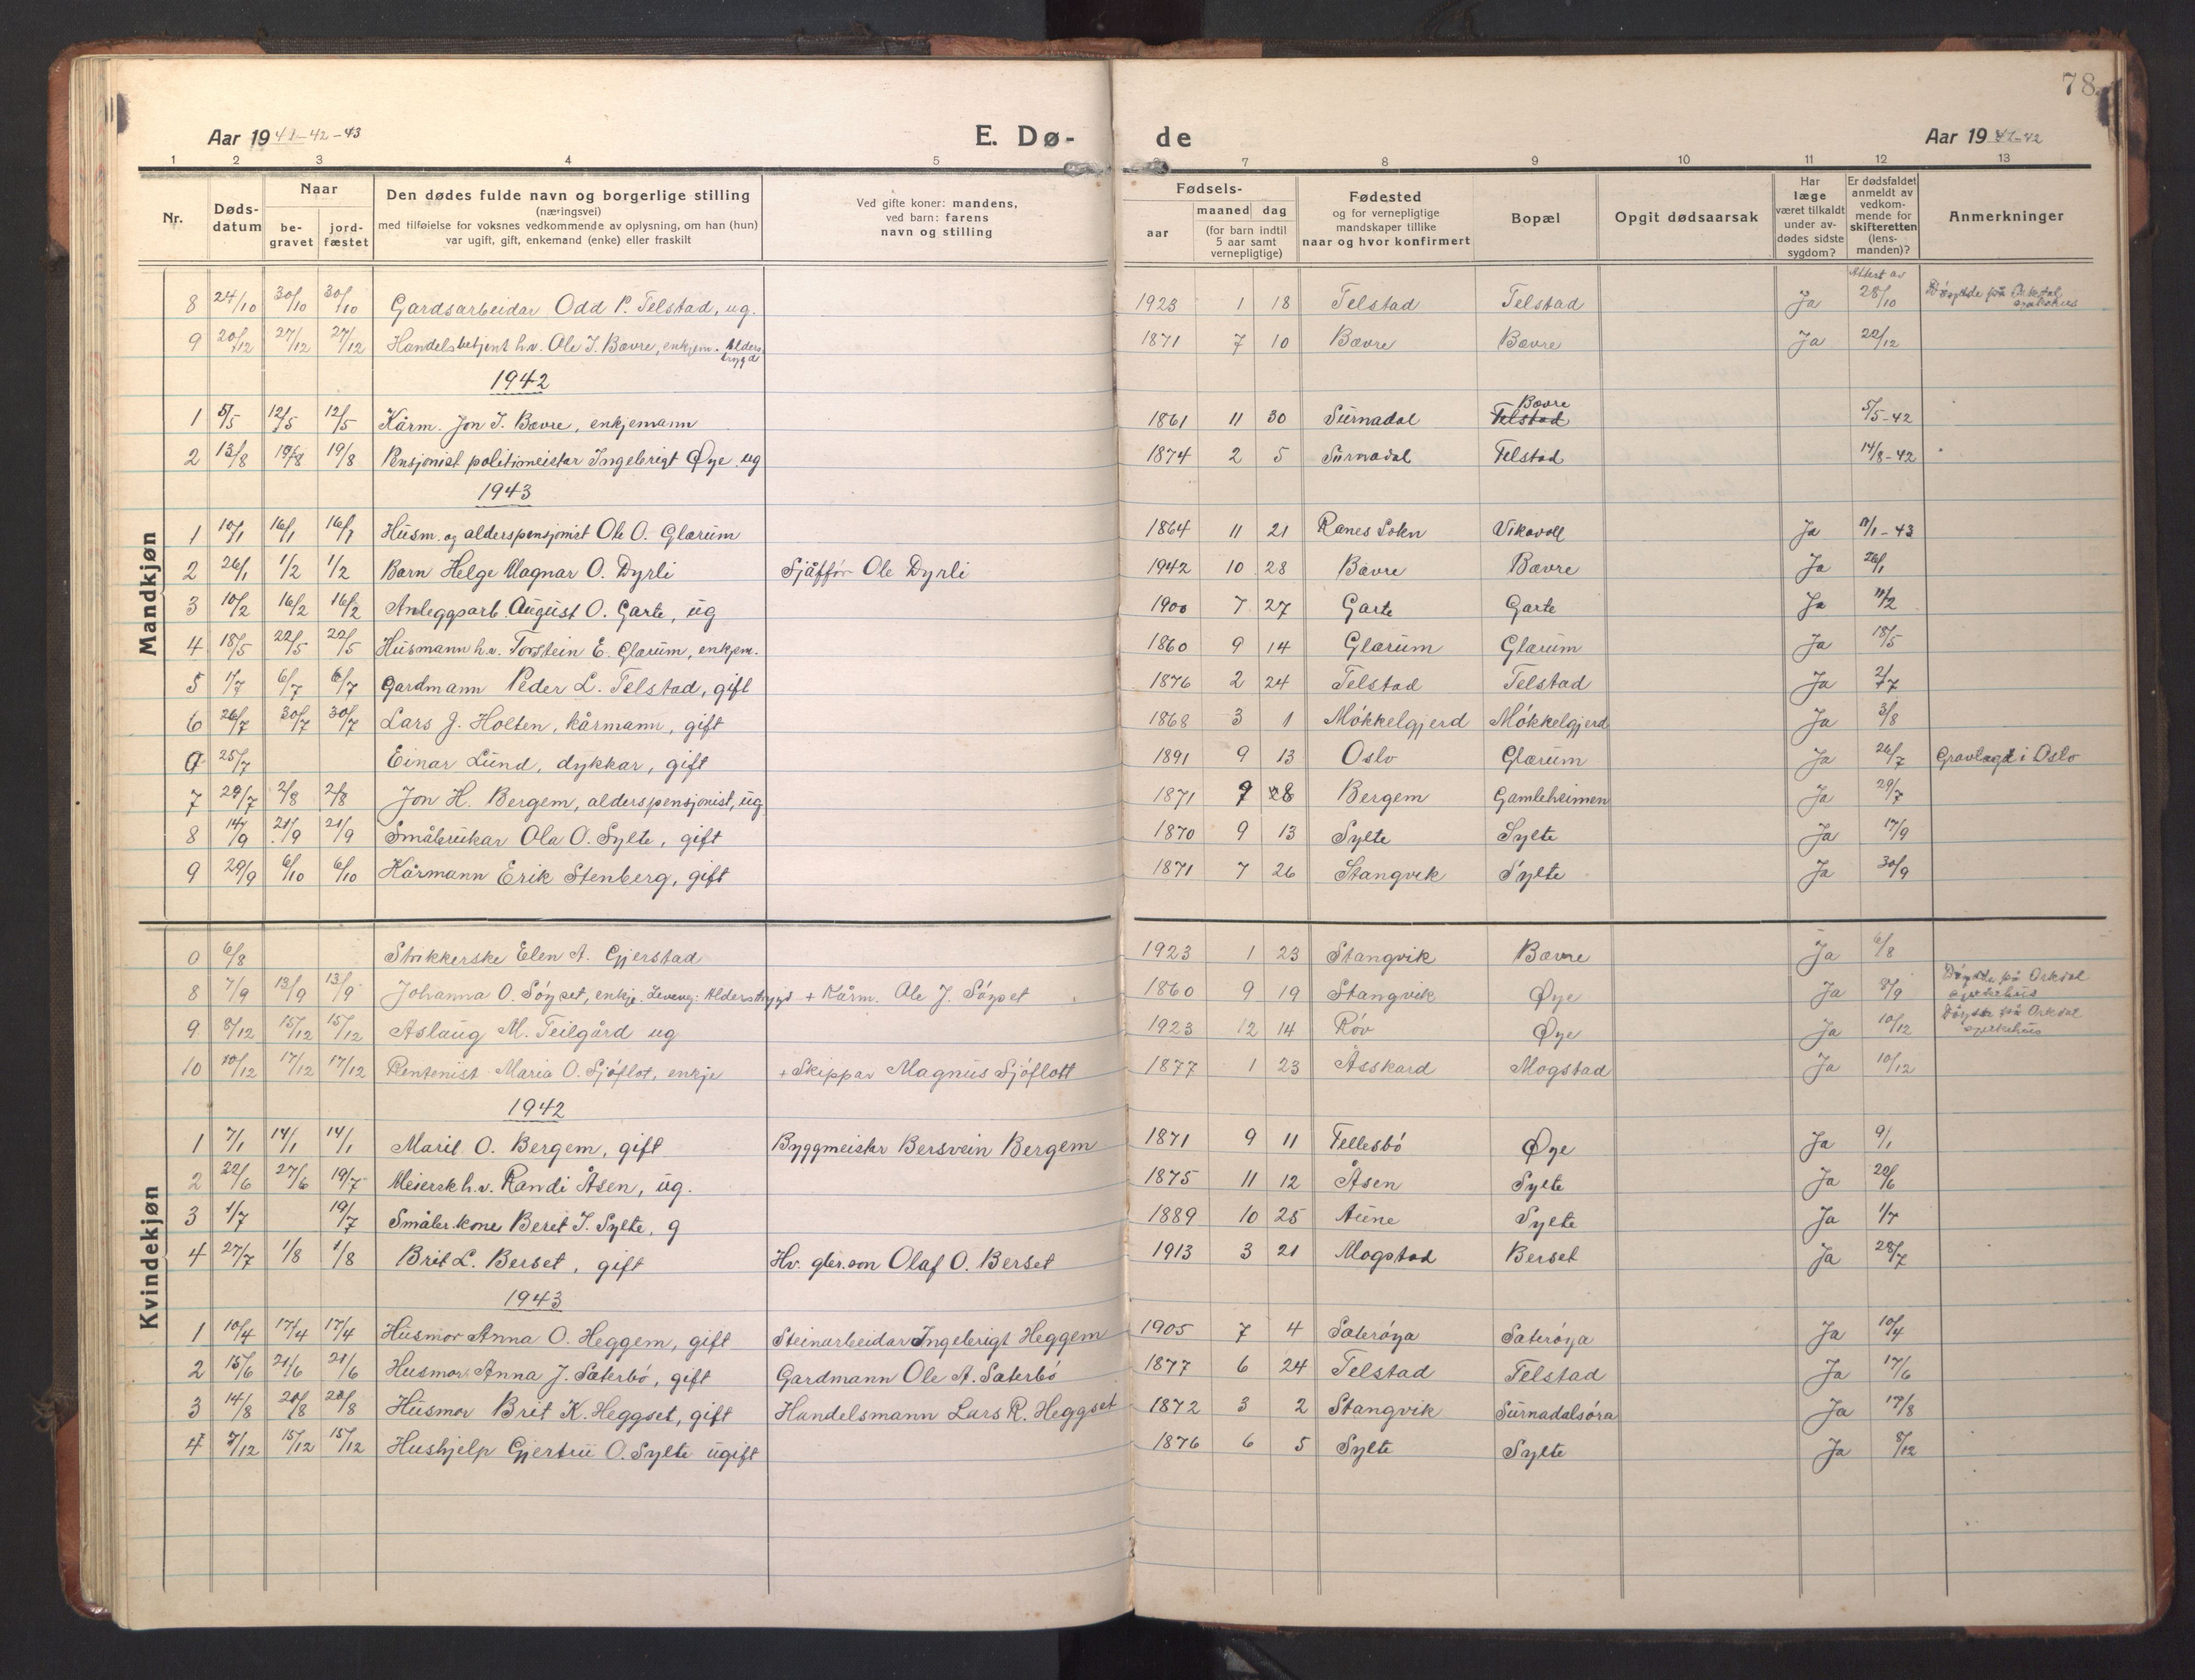 78.
Aar 19 41-42-43 E. Dø- de Aar 19 41-42
1 2 3 4 5 7 8 9 10 11 12 13
Nr. Døds-datum Naar be-gravet jord-fæstet Den dødes fulde navn og borgerlige stilling (næringsvei) med tilføielse for voksnes vedkommende av oplysning, om han (hun) var ugift, gift, enkemand (enke) eller fraskilt Ved gifte koner: mandens, ved barn: farens navn og stilling Fødsels- aar maaned dag (for barn indtil 5 aar samt vernepligtige) Fødested og for vernepligtige mandskaper tillike naar og hvor konfirmert Bopæl Opgit dødsaarsak Har læge været tilkaldt under av-dødes sidste sygdom? Er dødsfaldet anmeldt av vedkom-mende for skifteretten (lens-manden)? Anmerkninger
Mandkjøn
8 24/10 30/10 30/10 Gardsarbeidar Odd P. Telstad, ug. 1923 1 18 Telstad Telstad Ja Attest av 28/10 Døydde på Orkdal sjukehus
9 20/12 27/12 27/12 Handelsbetjent h.v. Ole J. Bævre, enkjem. Alders trygd 1871 7 10 Bævre Bævre Ja 22/12
1942
1 5/5 12/5 12/5 Kårm. Jon J. Bævre, enkjemann 1861 11 30 Surnadal Telstad Bævre 5/5-42
2 13/8 19/8 19/8 Pensjonist politimeistar Ingebrigt Øye. ug 1874 2 5 Surnadal Telstad 14/8-42
1943
1 10/1 16/1 16/1 Husm. og alderspensjonist Ole O. Glærum 1864 11 21 Ranes Sokn Vikavoll Ja 11/1-43
2 26/1 1/2 1/2 Barn Helge Magnar O. Dyrli Sjåffør Ole Dyrli 1942 10 28 Bævre Bævre Ja 26/1
3 10/2 16/2 16/2 Anleggsarb. August O. Garte, ug 1900 7 27 Garte Garte Ja 11/2
4 18/5 22/5 22/5 Husmann h.v. Torstein E. Glærum, enkjem. 1860 9 14 Glærum Glærum Ja 18/5
5 1/7 6/7 6/7 Gardmann Peder L. Telstad, gift 1876 2 24 Telstad Telstad Ja 2/7
6 26/7 30/7 30/7 Lars J. Holten, kårmann, gift 1868 3 1 Møkkelgjerd Møkkelgjerd Ja 3/8
0 25/7 Einar Lund, dykkar, gift 1891 9 13 Oslo Glærum Ja 26/7 Gravlagt i Oslo
7 29/7 2/8 2/8 Jon H. Bergem, alderspensjonist, ug 1871 9 28 Bergem Gamleheimen Ja 29/7
8 14/9 21/9 21/9 Småbrukar Ola O. Sylte, gift 1870 9 13 Sylte Sylte Ja 17/9
9 29/9 6/10 6/10 Kårmann Erik Stenberg, gift 1871 7 26 Stangvik Sylte Ja 30/9
Kvindekjøn
0 6/8 Strikkerske Elen A. Gjerstad 1923 1 23 Stangvik Bævre Ja 6/8
8 7/9 13/9 13/9 Johanna O. Søyset, enkje. Leveveg: Alderstrygd + Kårm. Ole J. Søyset 1860 9 19 Stangvik Øye Ja 8/9 Døydde på Orkdal sjukehus
9 8/12 15/12 15/12 Aslaug M. Teilgård ug 1923 12 14 Røv Øye Ja 10/12 Døydde på Orkdal sjukehus
10 10/12 17/12 17/12 Rentenist Maria O. Sjøflot, enkje + Skippar Magnus Sjøflott 1877 1 23 Åsskard Mogstad Ja 10/12
1942
1 7/1 14/1 14/1 Marit O. Bergem, gift Byggmeister Bersvein Bergem 1871 9 11 Tellesbø Øye Ja 9/1
2 22/6 27/6 19/7 Meiersk h.v. Randi Åsen, ug. 1875 11 12 Åsen Sylte Ja 22/6
3 1/7 19/7 Småbr.kone Berit J. Sylte, g 1889 10 25 Aune Sylte Ja 1/7
4 27/7 1/8 1/8 Brit L. Berset, gift Hv. gbr.son Olaf O. Berset 1913 3 21 Mogstad Berset Ja 28/7
1943
1 10/4 17/4 17/4 Husmor Anna O. Heggem, gift Steinarbeidar Ingebrigt Heggem 1905 7 4 Sæterøya Sæterøya Ja 10/4
2 15/6 21/6 21/6 Husmor Anna J. Sæterbø, gift Gardmann Ole A. Sæterbø 1877 6 24 Telstad Telstad Ja 17/6
3 14/8 20/8 20/8 Husmor Brit K. Heggset, gift Handelsmann Lars R. Heggset 1872 3 2 Stangvik Surnadalsøra Ja 17/8
4 7/12 15/12 15/12 Hushjelp Gjertru O. Sylte ugift 1876 6 5 Sylte Sylte Ja 8/12